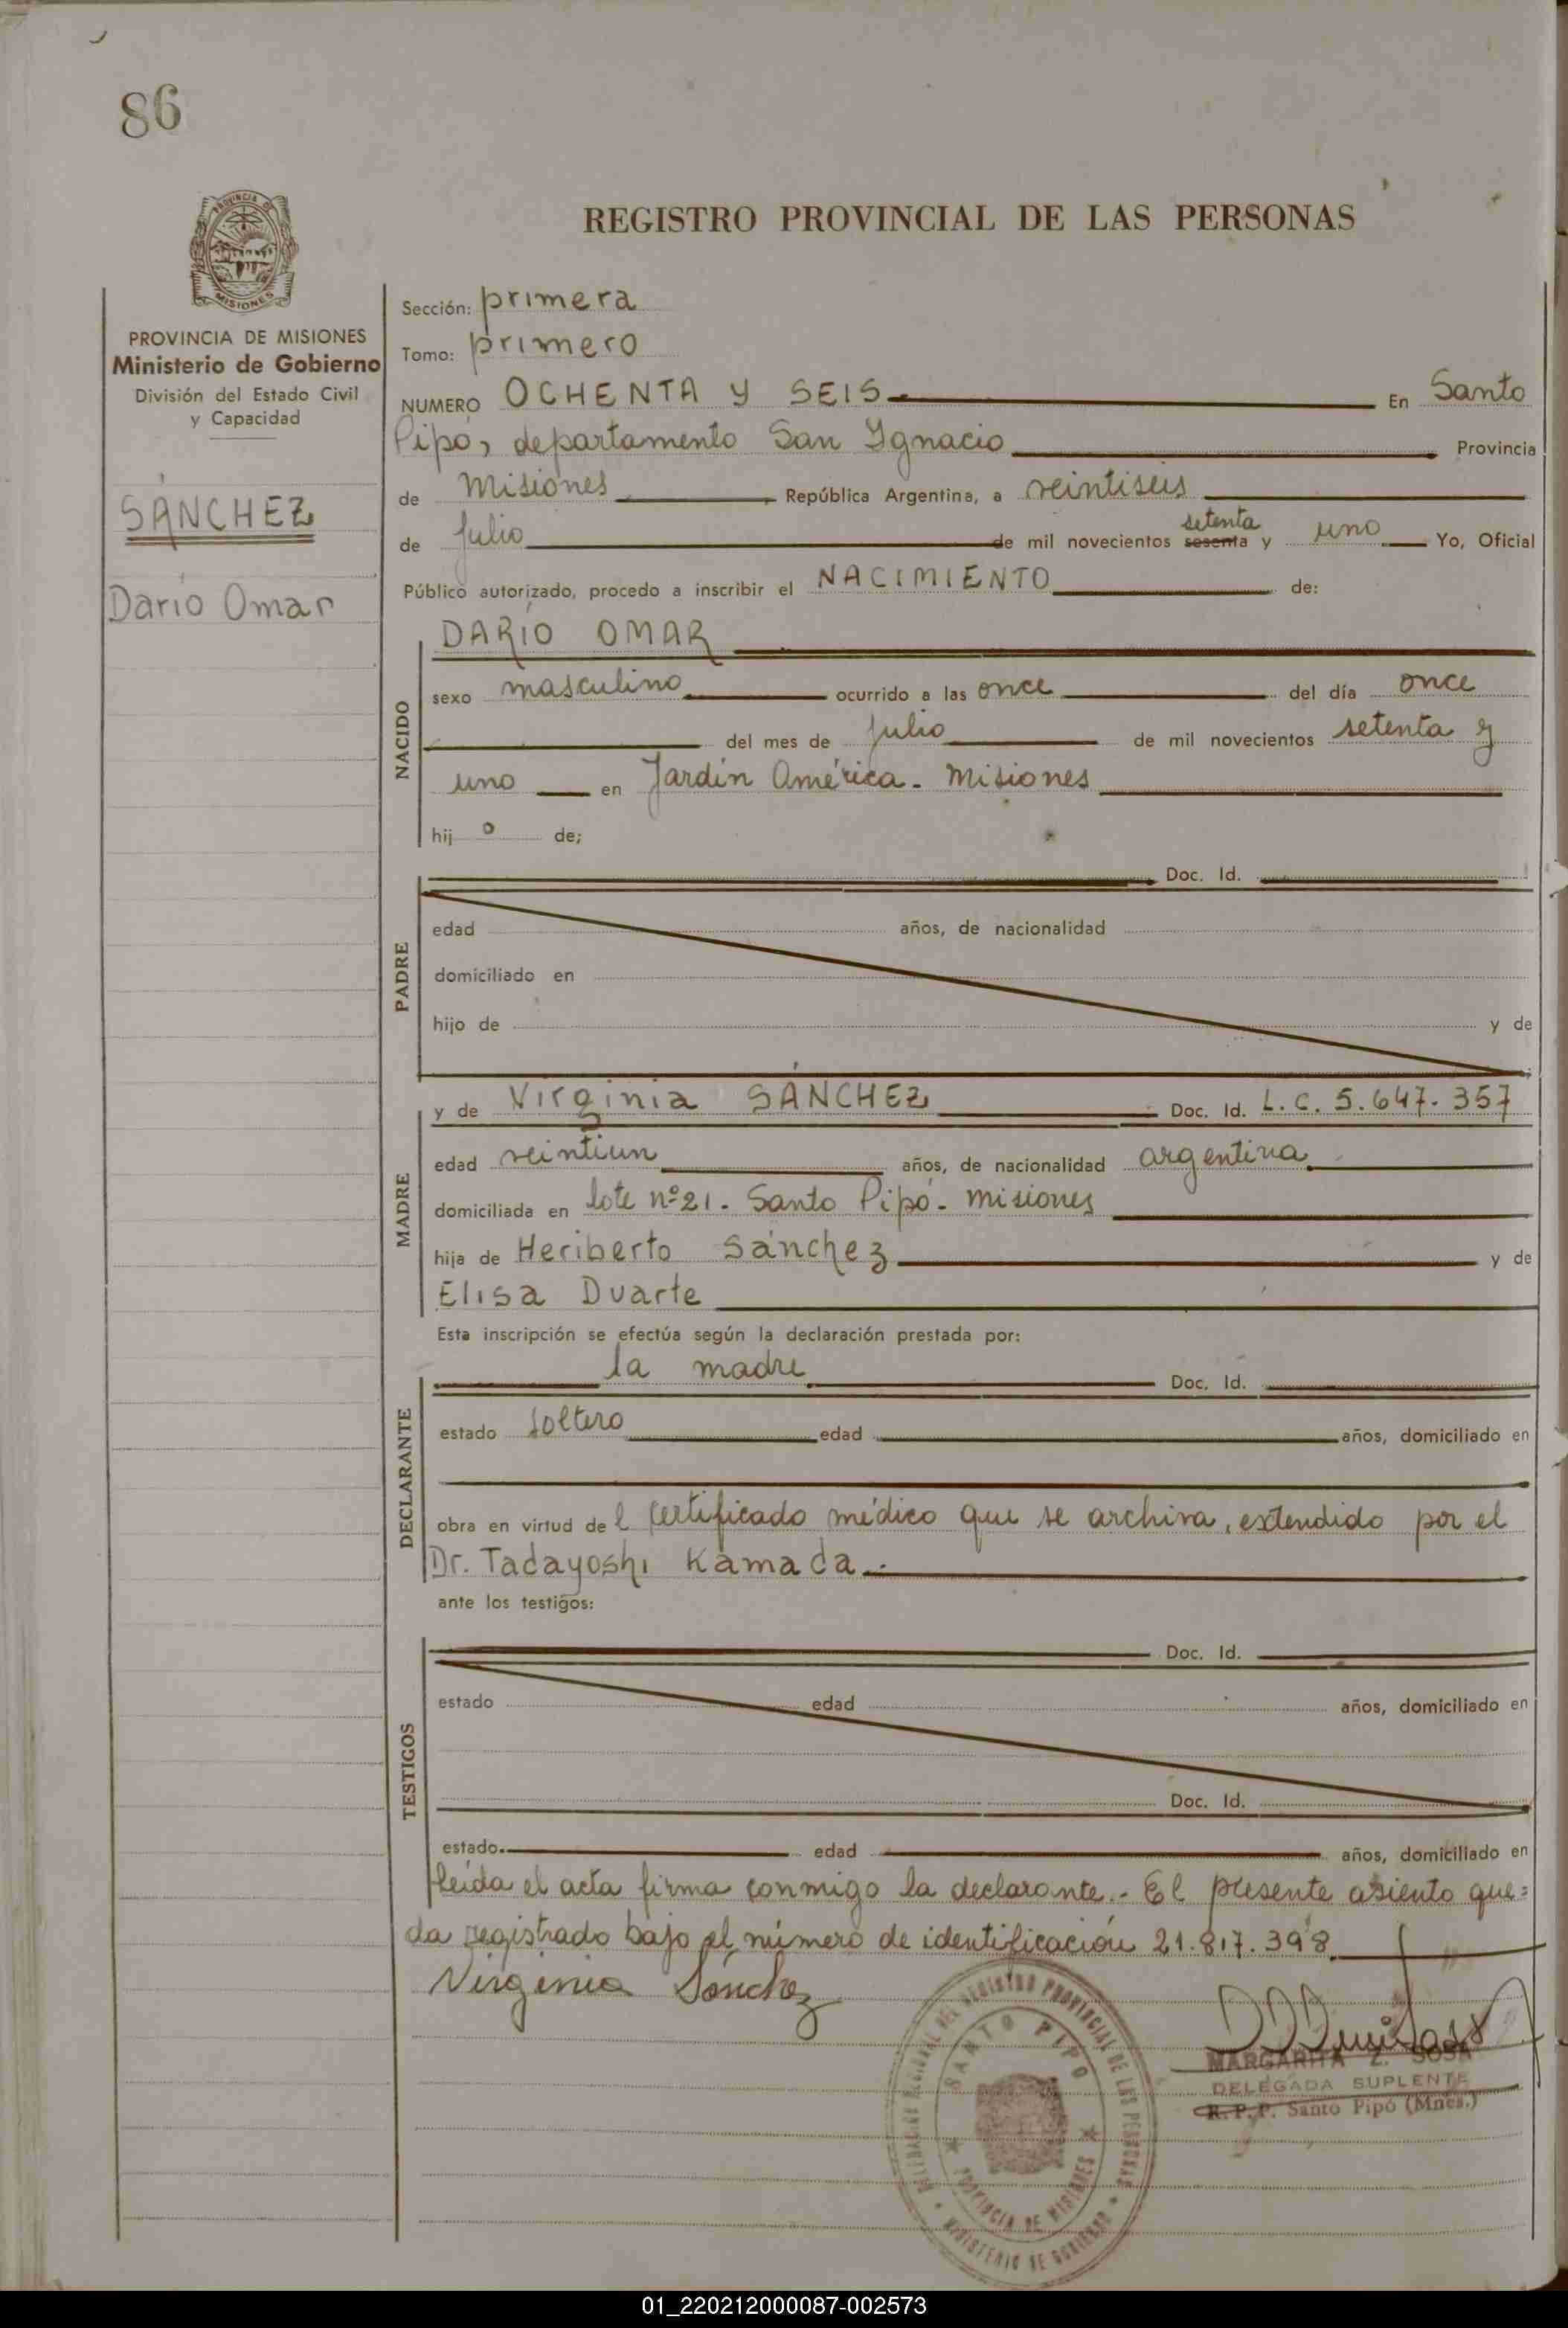 86
REGISTRO PROVINCIAL DE LAS PERSONAS
PROVINCIA DE MISIONES
Ministerio de Gobierno
División del Estado Civil
y Capacidad
SÁNCHEZ
Darío Omar
Sección: primera
Tomo: primero
NUMERO OCHENTA Y SEIS En Santo
Pipó, departamento San Ignacio Provincia
de Misiones República Argentina, a veintiseis
de Julio de mil novecientos sesenta setenta y uno Yo, Oficial
Público autorizado, procedo a inscribir el NACIMIENTO de:
NACIDO
DARÍO OMAR
sexo masculino ocurrido a las once del día once
del mes de Julio de mil novecientos setenta y
uno en Jardín América - Misiones
hij o de;
PADRE
Doc. Id.
edad años, de nacionalidad
domiciliado en
hijo de y de
MADRE
y de Virginia SÁNCHEZ Doc. Id. L.C. 5.647.357
edad veintiun años, de nacionalidad argentina
domiciliada en lote nº21 - Santo Pipó - Misiones
hija de Heriberto Sánchez y de
Elisa Duarte
Esta inscripción se efectúa según la declaración prestada por:
DECLARANTE
la madre Doc. Id.
estado soltero edad años, domiciliado en
obra en virtud del certificado médico que se archiva, extendido por el
Dr. Tadayoshi Kamada.-
ante los testigos:
TESTIGOS
Doc. Id.
estado edad años, domiciliado en
Doc. Id.
estado edad años, domiciliado en
Leída el acta firma conmigo la declarante.- El presente asiento que=
da registrado bajo el número de identificación 21.817.398
Virginia Sánchez
MARGARITA Z. SOSA
DELEGADA SUPLENTE
R.P.P. Santo Pipó (Mnes.)
DELEGACION REGIONAL DEL REGISTRO PROVINCIAL DE LAS PERSONAS
SANTO PIPO
PROVINCIA DE MISIONES
MINISTERIO DE GOBIERNO
01_220212000087-002573